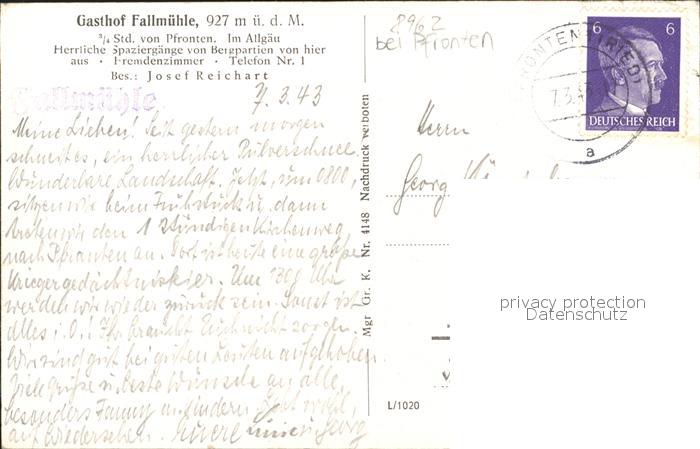 Gasthof Fallmühle, 927 m ü. d. M.
¾ Std. von Pfronten. Im Allgäu
Herrliche Spaziergänge von Bergpartien von hier
aus · Fremdenzimmer · Telefon Nr. 1
Bes.: Josef Reichart
Fallmühle
7.3.43
Meine Lieben! Seit gestern morgen
schneit es, ein herrlicher Pulverschnee.
Wunderbare Landschaft. Jetzt, um 0800,
sitzen wir beim Frühstück u. dann
treten wir den 1 stündigen Kirchenweg
nach Pfronten an. Dort ist heute eine große
Kriegergedächtniskier. Um 1300 Uhr
werden wir wieder zurück sein. Sonst ist
alles i.O.! Ihr braucht Euch nicht sorgen.
Wir sind gut bei guten Leuten aufgehoben.
Viele Grüße u. beste Wünsche an alle,
besonders Fanny m. Kindern. Lebt wohl,
auf Wiedersehen. Euere und Georg
Mgr Gr. K. Nr. 4148 Nachdruck verboten
8962
bei Pfronten
PFRONTEN (RIED)
7.3.43
a
6 6
DEUTSCHES REICH
Herrn
Georg
privacy protection
Datenschutz
L/1020